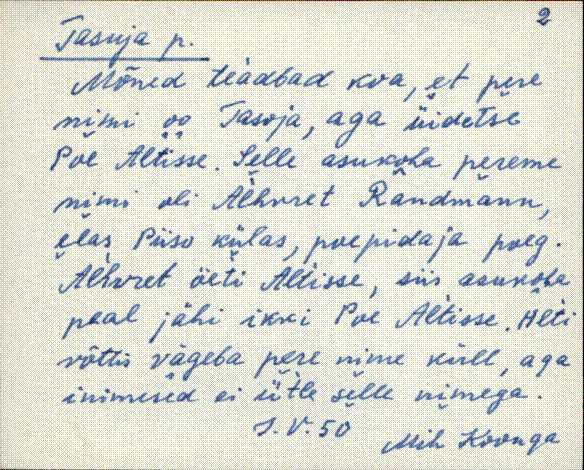 2
Tasuja p.
Mõned teadbad kva, et pere
nimi oo Tasoja, aga üidetse
Poe Altisse. Selle asukoha pereme
nimi oli Alhvret Randmann,
elas Piiso külas, poepidaja poeg.
Alhvret öeti Altisse, siis asukoha
peal jähi ikki Poe Altisse. Hlti
võttis vägeba pere nime küll, aga
inimesed ei ütle selle nimega.
S.V.50
Mih Koonga